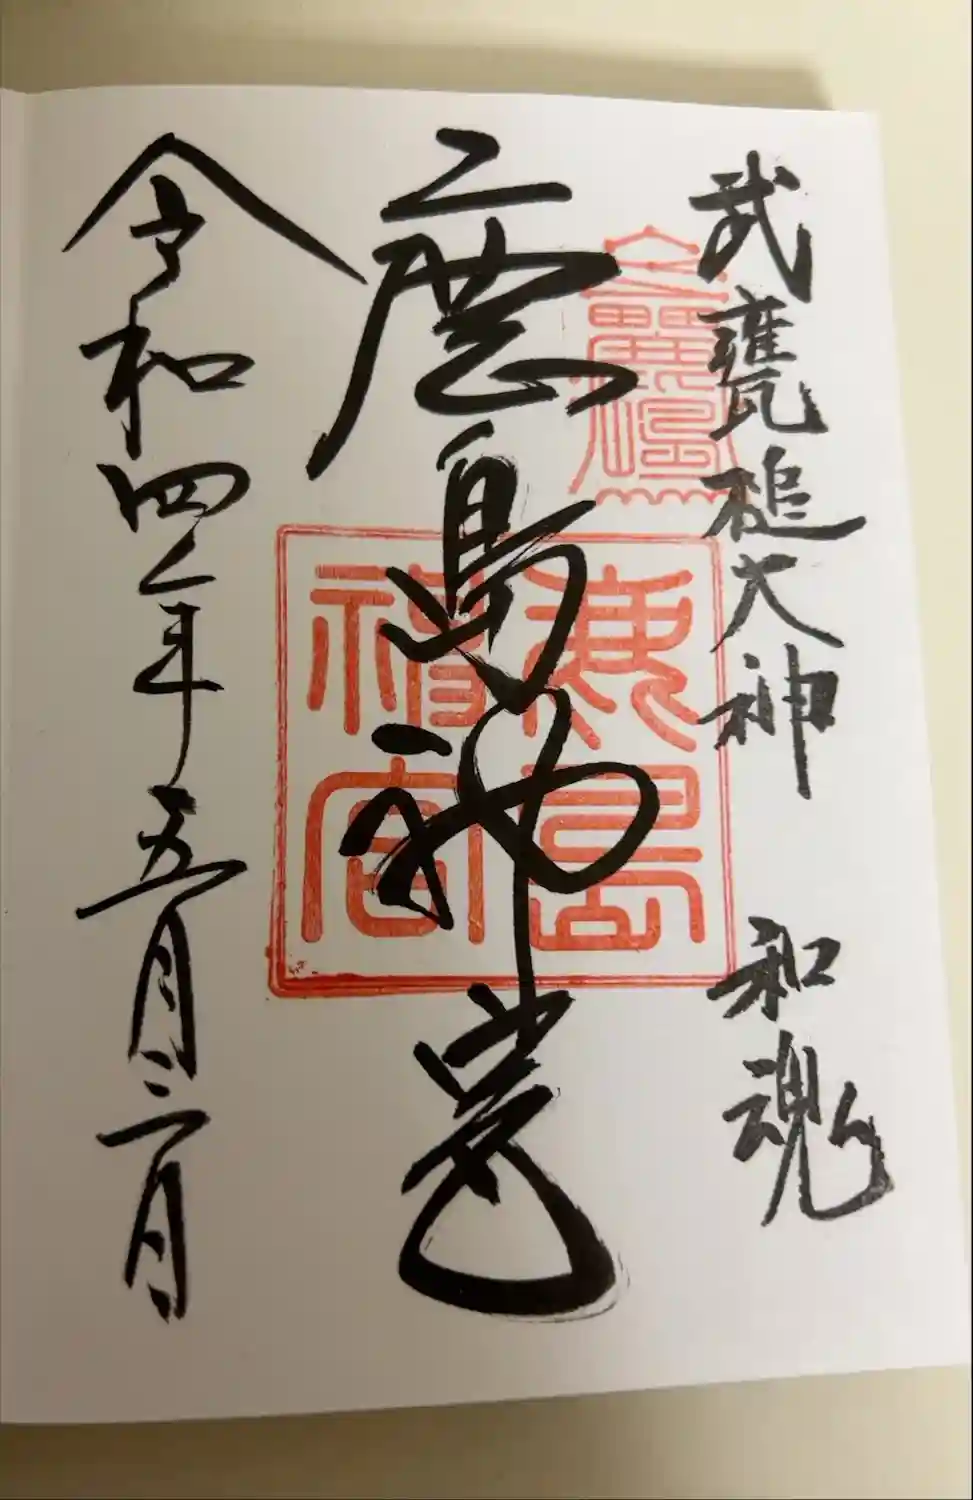 武甕槌大神 和魂
鹿島神宮
鹿島
神宮
令和四年五月二日